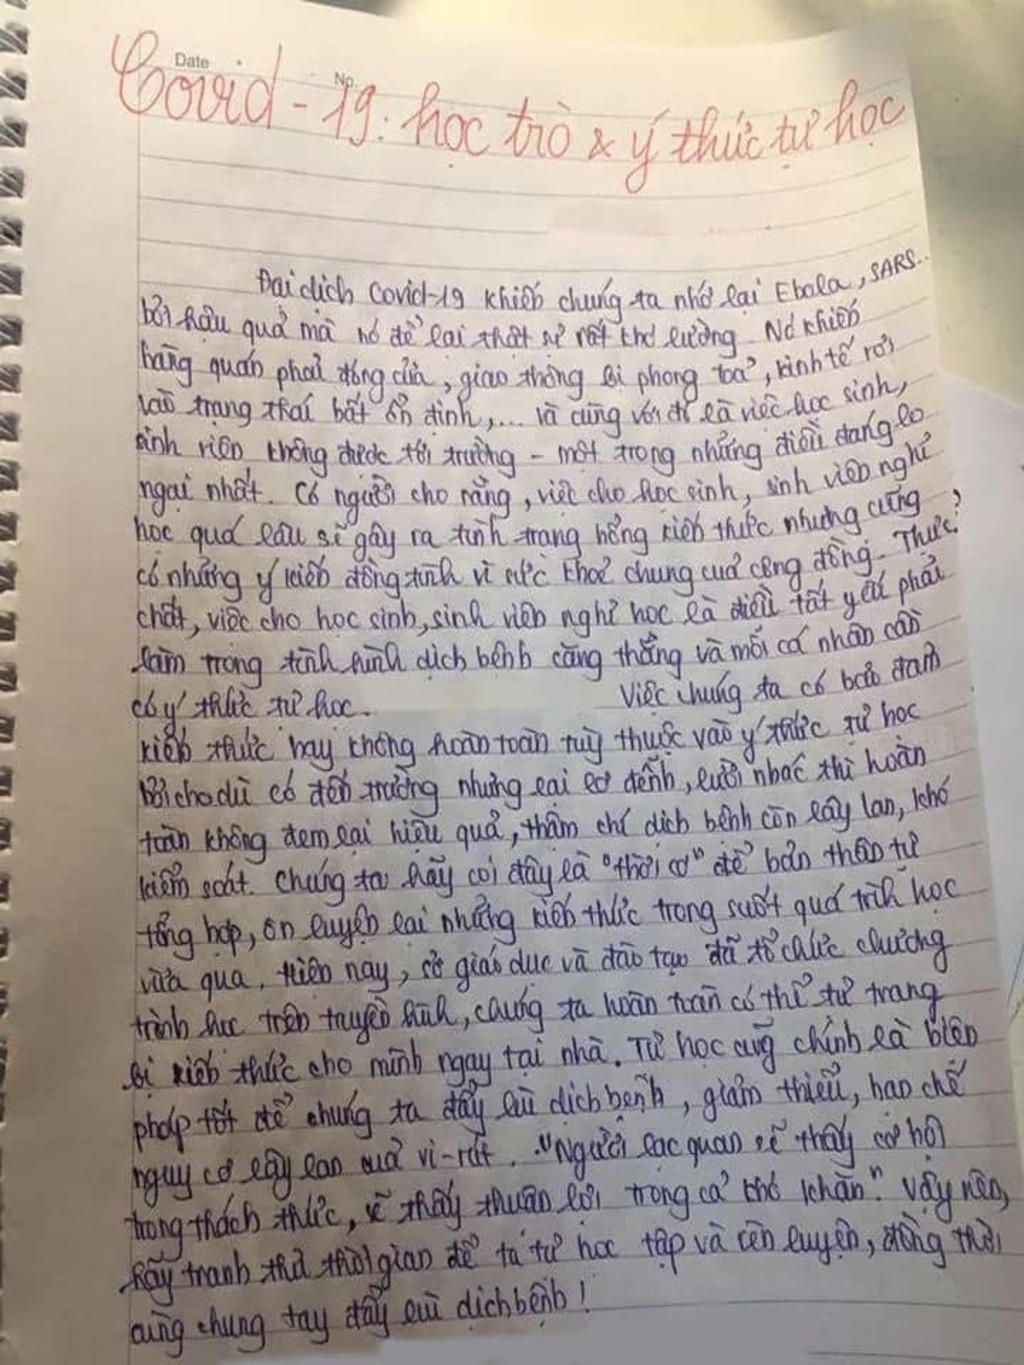 Date
No.
Covid-19: học trò & ý thức tự học
Đại dịch Covid-19 khiến chúng ta nhớ lại Ebola, SARS...
bởi hậu quả mà nó để lại thật sự rất khó lường. Nó khiến
hàng quán phải đóng cửa, giao thông bị phong toả, kinh tế rơi
vào trạng thái bất ổn định,... và cùng với đó là việc học sinh,
sinh viên không được tới trường - một trong những điều đáng lo
ngại nhất. Có người cho rằng, việc cho học sinh, sinh viên nghỉ
học quá lâu sẽ gây ra tình trạng hổng kiến thức nhưng cũng
có những ý kiến đồng tình vì sức khoẻ chung của cộng đồng. Thực
chất, việc cho học sinh, sinh viên nghỉ học là điều tất yếu phải
làm trong tình hình dịch bệnh căng thẳng và mỗi cá nhân cần
có ý thức tự học. Việc chúng ta có bảo đảm
kiến thức hay không hoàn toàn tuỳ thuộc vào ý thức tự học
bởi cho dù có đến trường nhưng lại lơ đễnh, lười nhác thì hoàn
toàn không đem lại hiệu quả, thậm chí dịch bệnh còn lây lan, khó
kiểm soát. Chúng ta hãy coi đây là "thời cơ" để bản thân tự
tổng hợp, ôn luyện lại những kiến thức trong suốt quá trình học
vừa qua. Hiện nay, sở giáo dục và đào tạo đã tổ chức chương
trình học trên truyền hình, chúng ta hoàn toàn có thể tự trang
bị kiến thức cho mình ngay tại nhà. Tự học cũng chính là biện
pháp tốt để chúng ta đẩy lùi dịch bệnh, giảm thiểu, hạn chế
nguy cơ lây lan của vi-rút. "Người lạc quan sẽ thấy cơ hội
trong thách thức, sẽ thấy thuận lợi trong cả khó khăn." Vậy nên,
hãy tranh thủ thời gian để ta tự học tập và rèn luyện, đồng thời
cùng chung tay đẩy lùi dịch bệnh!